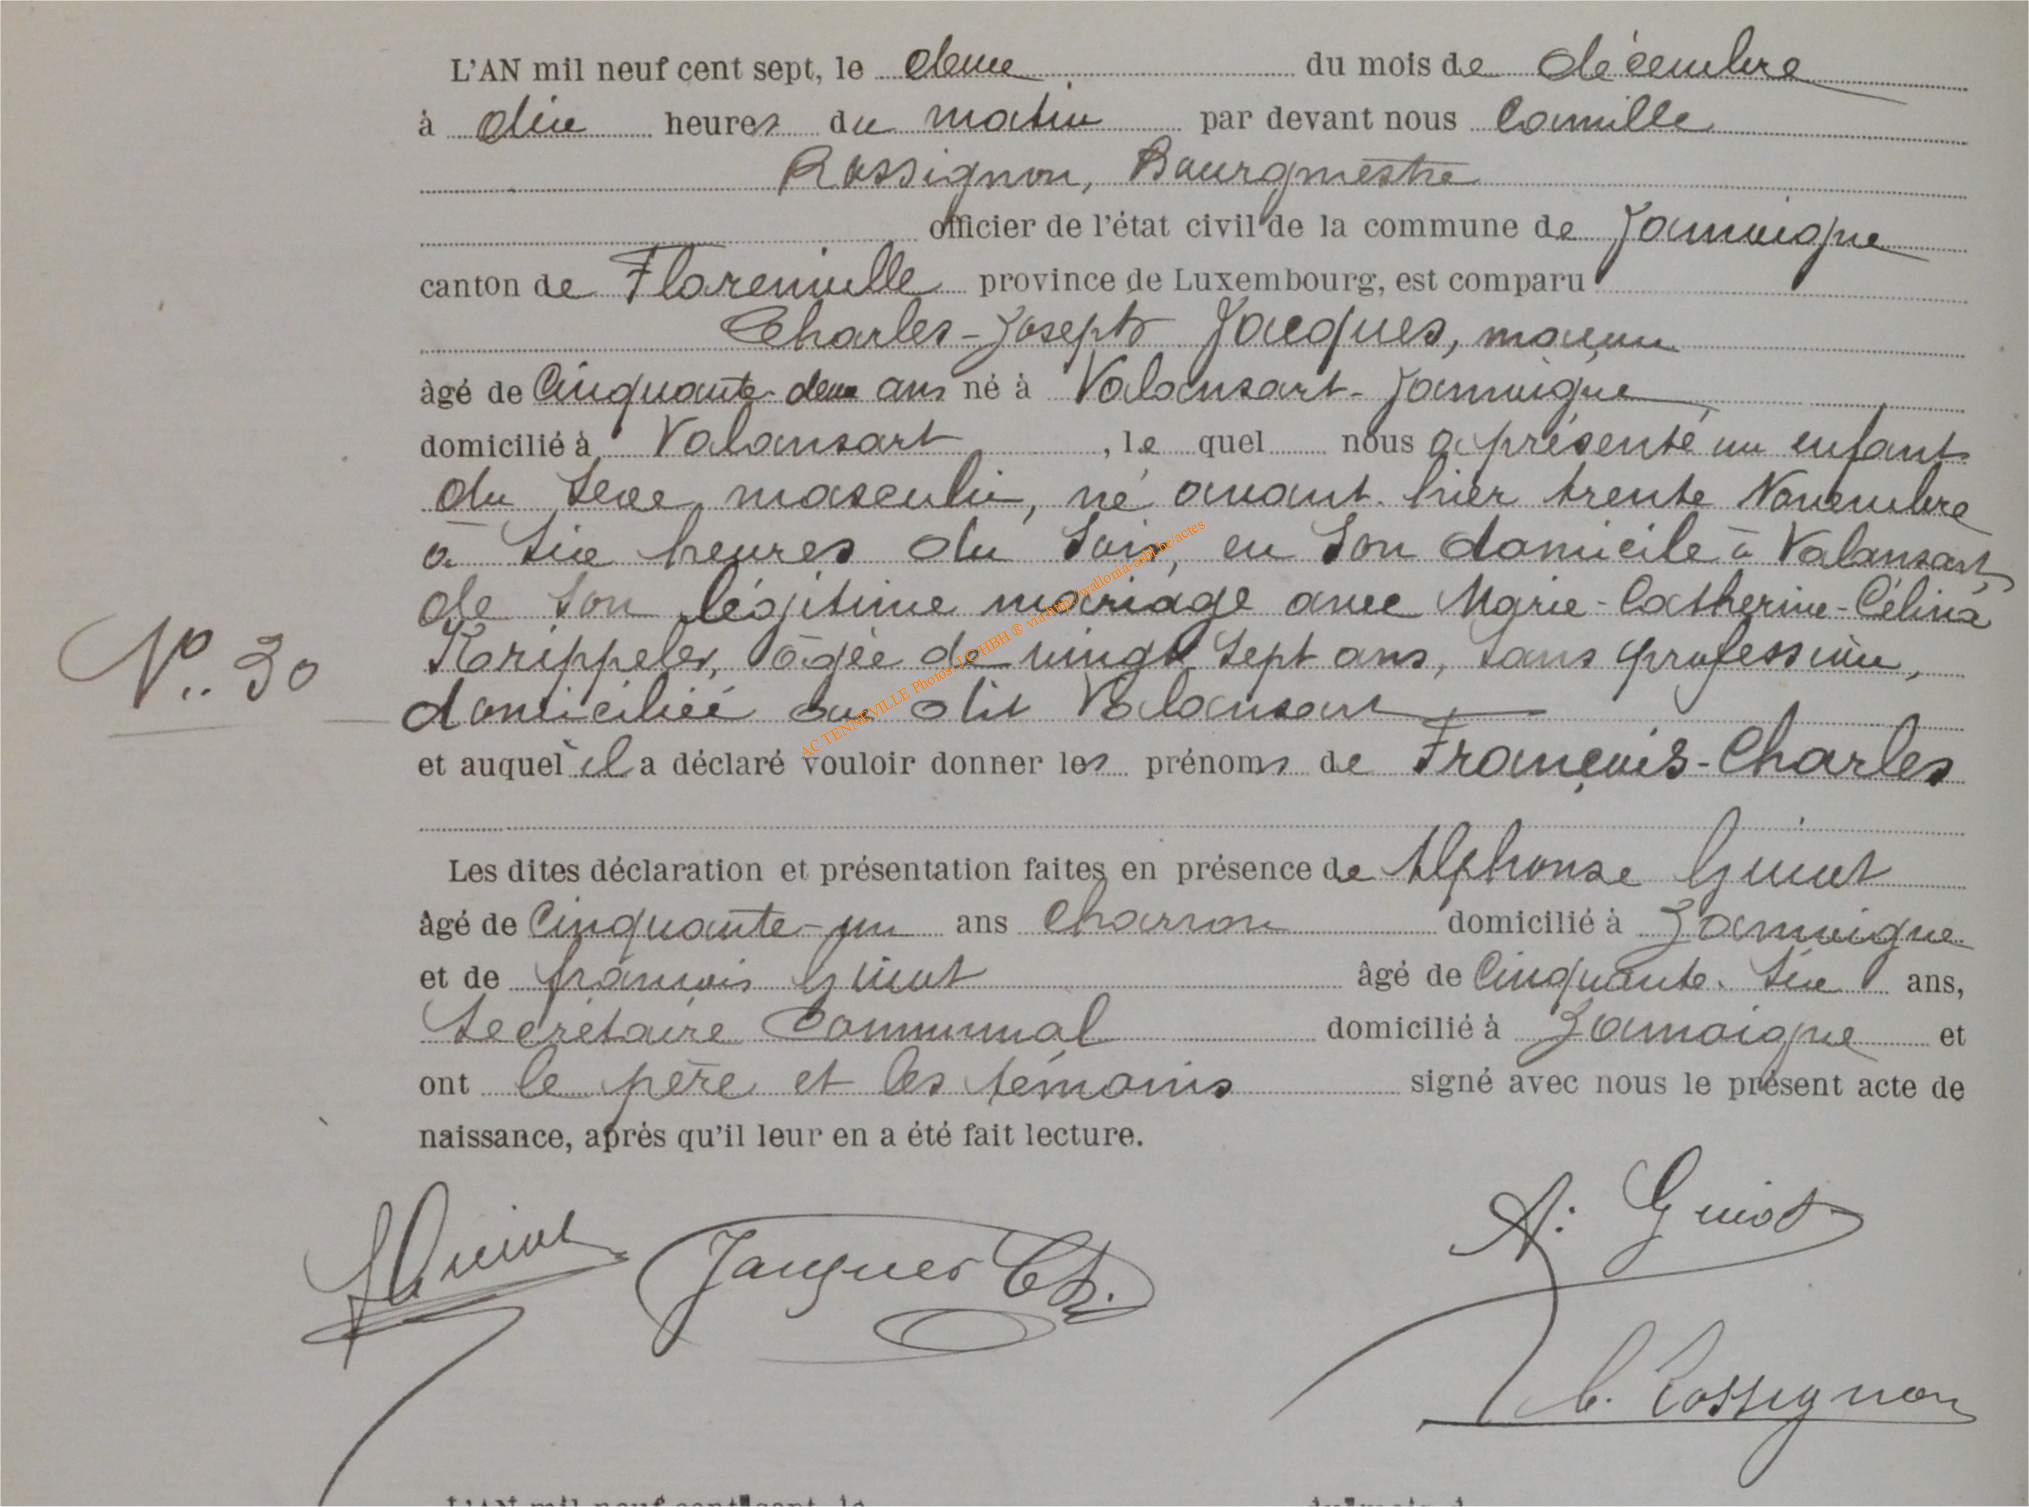 L'AN mil neuf cent sept, le deux du mois de décembre
à dix heures du matin par devant nous Camille
Rossignon, Bourgmestre
officier de l'état civil de la commune de Jamoigne
canton de Florenville province de Luxembourg, est comparu
Charles-Joseph Jacques, maçon
âgé de Cinquante-deux ans né à Valansart-Jamoigne
domicilié à Valansart, le quel nous a présenté un enfant
du sexe masculin, né avant hier trente Novembre
à six heures du soir, en son domicile à Valansart,
de son légitime mariage avec Marie-Catherine-Célina
âgée de vingt sept ans, sans profession,
N° 30
domiciliée au dit Valansart
et auquel il a déclaré vouloir donner les prénoms de François-Charles
Les dites déclaration et présentation faites en présence de Alphonse Guiot
âgé de Cinquante-un ans Charron domicilié à Jamoigne
et de françois Guiot âgé de Cinquante-six ans,
Secrétaire Communal domicilié à Jamoigne et
ont le père et les témoins signé avec nous le présent acte de
naissance, après qu'il leur en a été fait lecture.
A: Guiot
F Guiot Jacques Ch.
C. Rossignon
L'AN mil neuf cent sept, le du mois d
AC TENNEVILLE Photos LOHBH ® via http://wallonia-asbl.be/actes